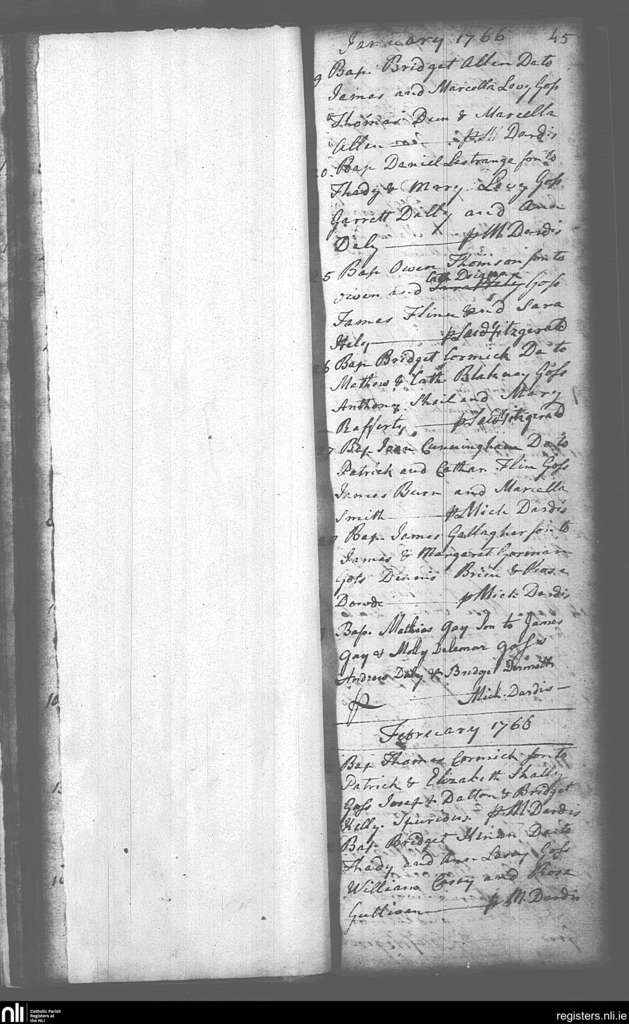 January 1766 45
9 Bap. Bridget Allen Da to
James and Marcella Levy Goss
Thomas Dun & Marcella
Allen — p M. Dardis
0. Bap Daniel Lestrange son to
Thady & Mary Levy Goss
Garrett Dally and Ann
Daly — p M Dardis
5 Bap Owen Thomson son to
Cath
Owen and Goss
James Fline and Sara
Hely — p Laud Fitzgerald
6 Bap Bridget Cormick Da to
Mathew & Cath Blakney Goss
Anthony Sheil and Mary
Rafferty — p Laud Fitzgerald
7 Bap Joan Cunningham Da to
Patrick and Cathar. Flin Goss
James Burn and Marcella
Smith — p Mich Dardis
Bap. James Gallagher son to
James & Margaret Gorman
Goss Dennis Brien & Rose
Dowde — p Mich Dardis
Bap. Mathias Gay Son to James
Gay & Molly Delemar Goss
Andrew Daly & Bridget Dermott
p Mich. Dardis —
February 1766
Bap Thomas Cormick son to
Patrick & Elizabeth Shally
Goss Joseph Dalton & Bridget
Kelly. p M Dardis
Bap. Bridget Kinian Da to
Thady and Ann Leavy Goss
William Casy and Rose
— p M. Dardis
nli
Catholic Parish
Registers at
the NLI
registers.nli.ie